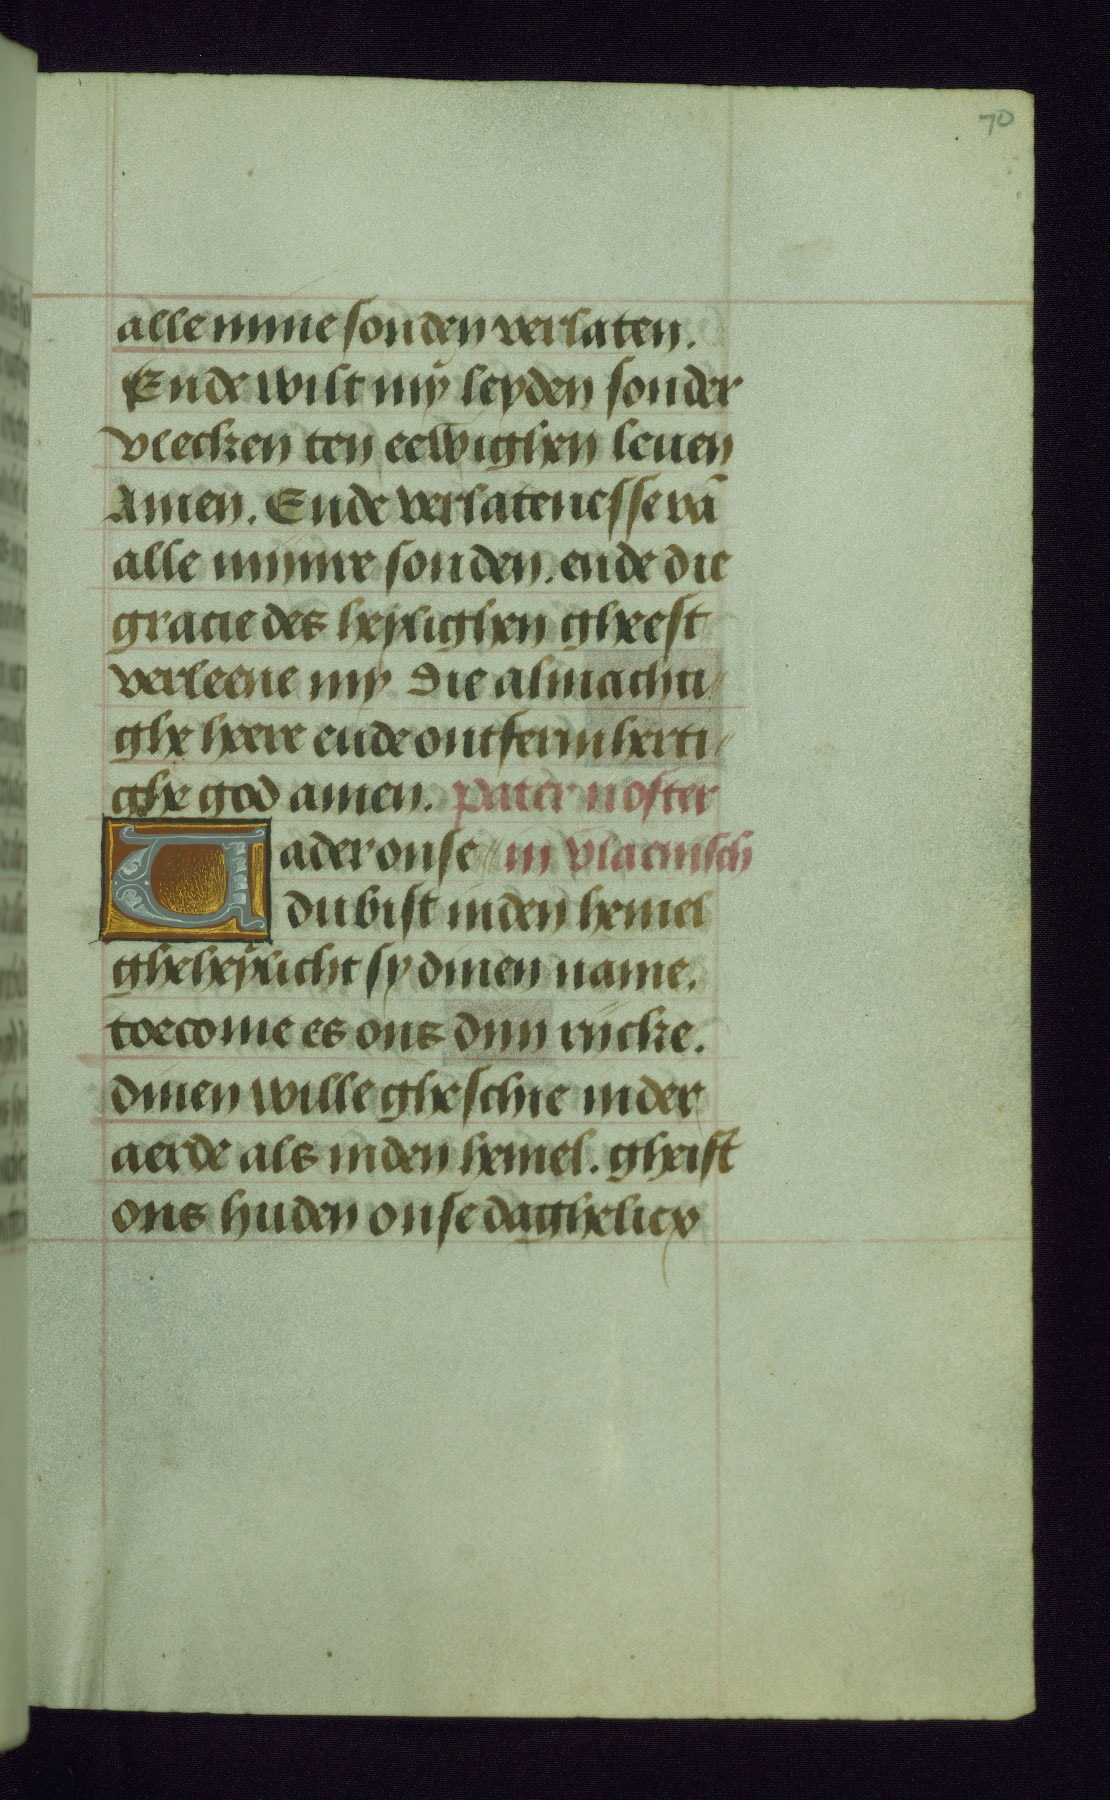 70
alle mine sonden verlaten.
Ende wilt mÿ leyden sonder
vlecken ten eewighen leuen
Amen. Ende verlatenesse vā
alle mijnre sonden. ende die
gracie des heÿlighen gheest
verleene mÿ Die almachti//
ghe heere ende ontfermherti//
ghe god amen. pater noster
Uader onse // in vlaemsch
du bist inden hemel
gheheÿlicht sy dinen name.
toecome es ons dijn rijcke.
dinen wille gheschie inder
aerde als inden hemel. gheift
ons huden onse daghelicx